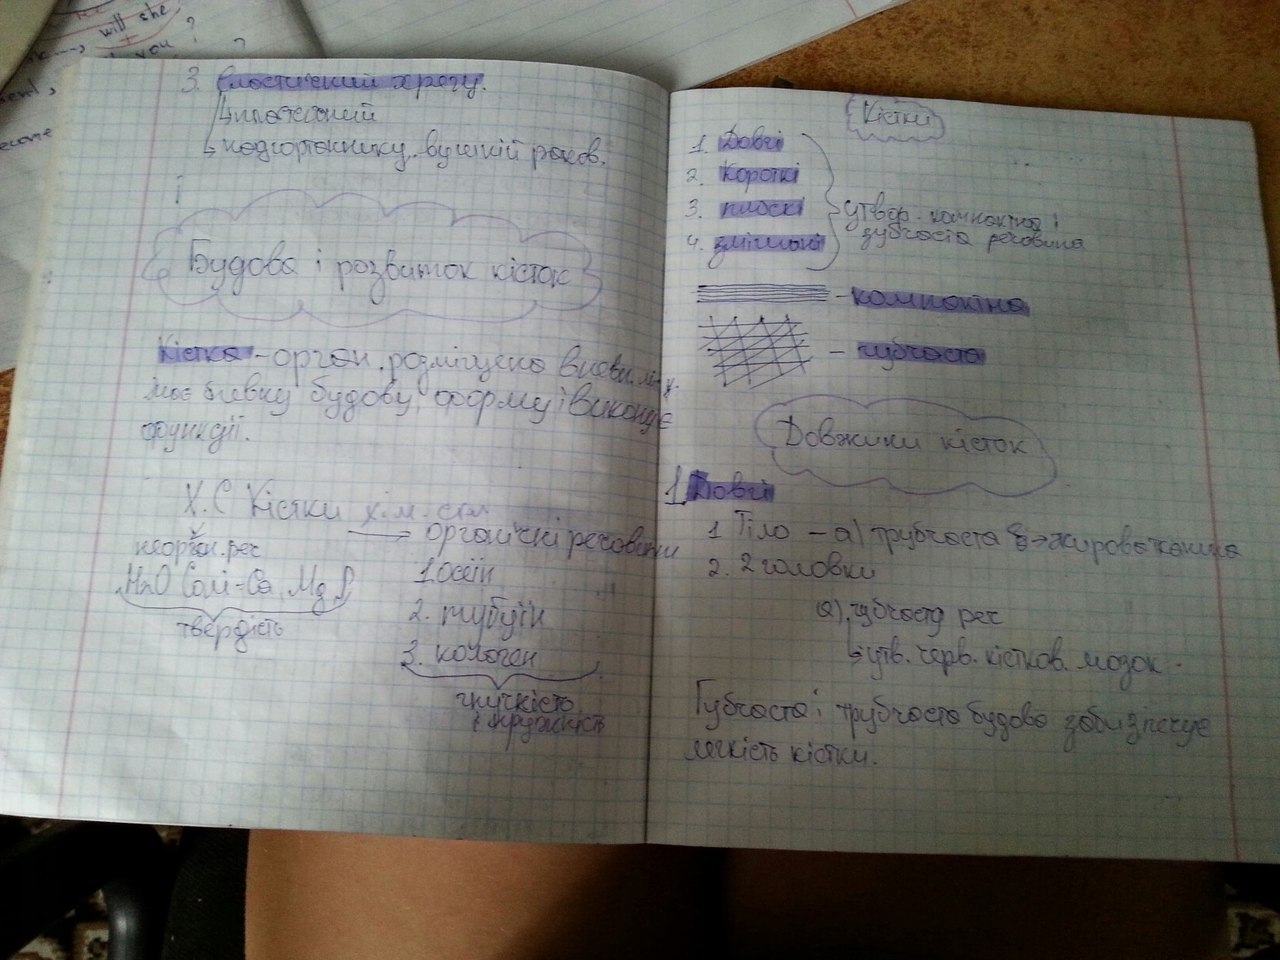 will she
you ?
3. Еластичний хрящ.
надгортаннику, вушній раков.
Будова і розвиток кісток
Кістка - орган, розміщено
має певну будову, форму і виконує
функції.
Х.С Кістки хім. скл
неорган. реч
органічні речовини
H2O Солі - Ca, Mg, P
твердість
1. осеїн
2.
3. колаген
гнучкість
і пружність
Кістки
1. Довгі
2. Короткі
3. плоскі
4. змішані
утвор. компактна і
губчаста речовина
- компактна
- губчаста
Довжини кісток
1 Довгі
1 Тіло - а) трубчаста жирова тканина
2. 2 головки
а) губчаста реч
утв. черв. кістков. мозок.
Губчаста і трубчаста будова забизпечує
легкість кістки.